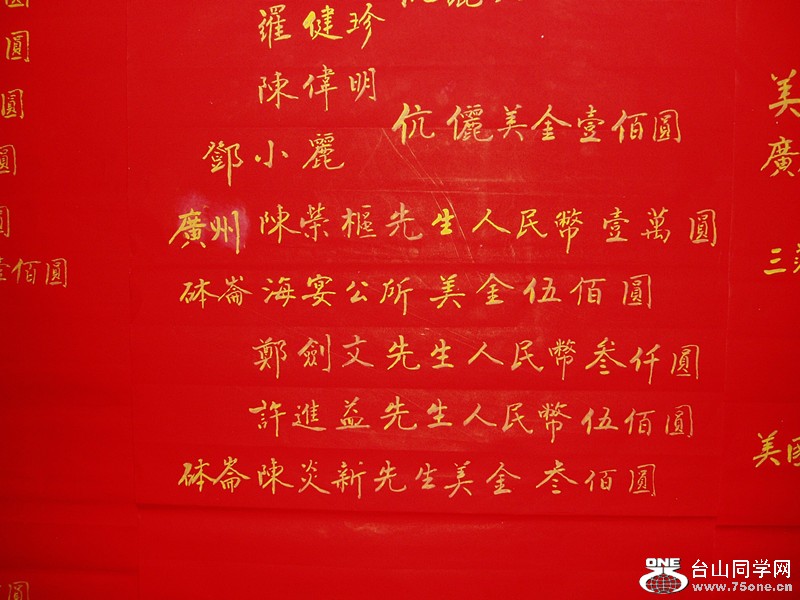 羅健珍
陳偉明
伉儷美金壹佰圓
鄧小麗
廣州陳榮樞先生人民幣壹萬圓
砵崙海宴公所美金伍佰圓
鄭劍文先生人民幣叁仟圓
許進益先生人民幣伍佰圓
砵崙陳炎新先生美金叁佰圓
圓
圓
圓
圓
圓
壹佰圓
圓
美
廣
三
美國
ONE
台山同学网
www.75one.cn